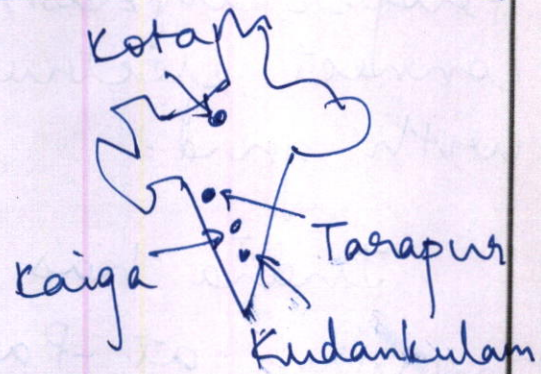 Kota
Tarapur
Kaiga
Kudankulam